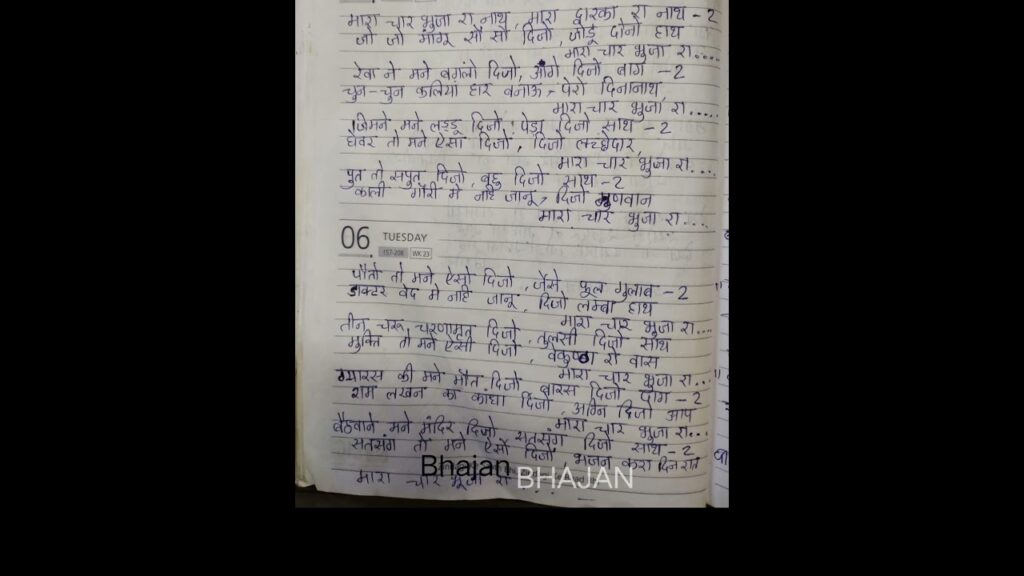 मारा चार भुजा रा नाथ, मारा द्वारका रा नाथ - 2
जो जो मांगू सो सो दिजो, जोडू दोनो हाथ
मारा चार भुजा रा....
रेवा ने मने बंगलो दिजो, आगे दिजो बाग - 2
चुन-चुन कलियां हार बनाऊ, पेरो दिनानाथ,
मारा चार भुजा रा.....
जिमने मने लड्डू दिजो, पेडा दिजो साथ - 2
घेवर तो मने ऐसा दिजो, दिजो लच्छेदार,
मारा चार भुजा रा....
पुत तो सपुत दिजो, बहु दिजो साथ - 2
काली गोरी मे नहि जानू, दिजो गुणवान
मारा चार भुजा रा....
06 TUESDAY
157-208 WK 23
पोतो तो मने ऐसो दिजो, जैसे फुल गुलाब - 2
डाक्टर वेद मे नहि जानू, दिजो लम्बा हाथ
मारा चार भुजा रा....
तीन चरू चरणामत दिजो, तुलसी दिजो साथ
मुक्ति तो मने ऐसी दिजो, वेकुण्ठा रो वास
मारा चार भुजा रा...
ग्यारस की मने मौत दिजो, बारस दिजो दाग - 2
राम लखन का कांधा दिजो, अग्नि दिजो आप
मारा चार भुजा रा...
बैठवाने मने मंदिर दिजो, सतसंग दिजो साथ - 2
सतसंग तो मने ऐसो दिजो, भजन करा दिन रात
मारा चार भूजा रा
Bhajan BHAJAN